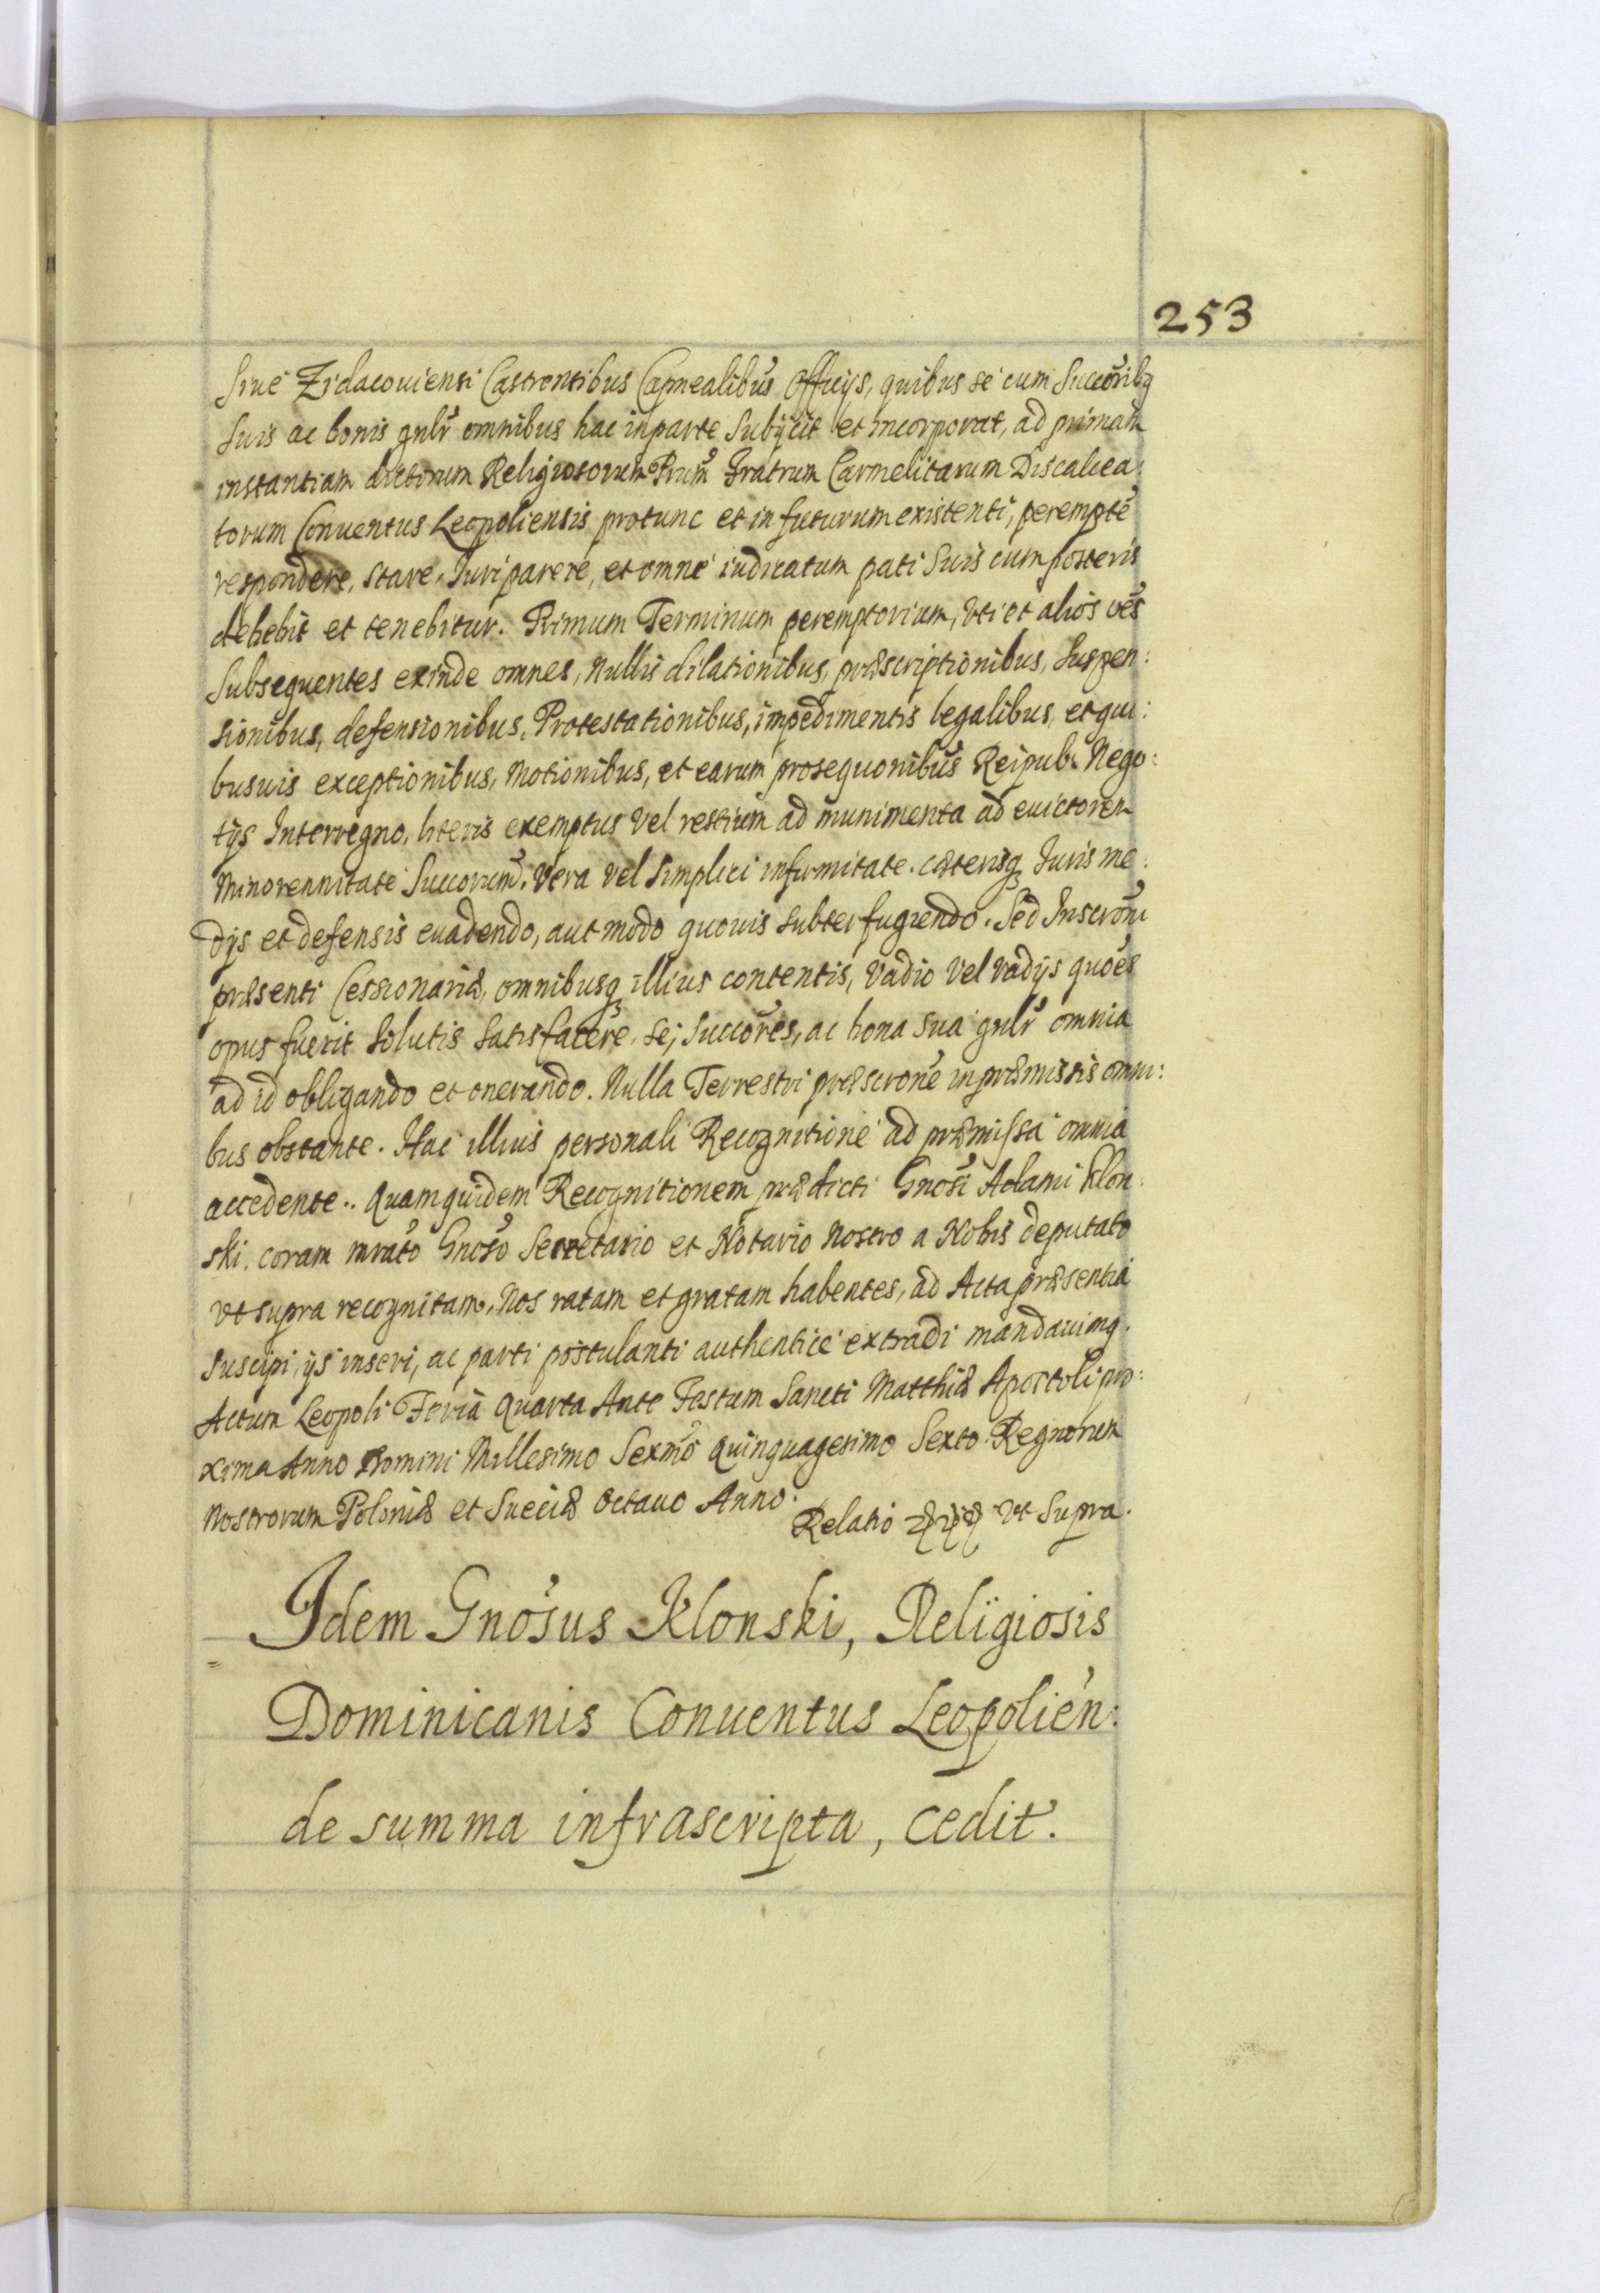 253
Siue Zidacouiensi Castrensibus Capnealibus Officijs, quibus se cum Succoribq
suis ac bonis gnlr omnibus hac in parte Subijcit et incorporat, ad primam
instantiam dictorum Religiosorum Prum Fratrum Carmelitarum Discalcea:
torum Conuentus Leopoliensis pro tunc et in futurum existenti, perempte
respondere, stare, Iuri parere, et omne iudicatum pati Suis cum posteris
debebit et tenebitur. Primum Terminum peremptorium, Vti et alios ves
Subsequentes exinde omnes, Nullis dilationibus, præscriptionibus, Suspen:
sionibus, defensionibus, Protestationibus, impedimentis legalibus, et qui:
busuis exceptionibus, Motionibus, et earum prosequonibus Reipub. Nego:
tijs Interregno, literis exemptus Vel restium ad munimenta ad euictorem
Minorennitate Succorum, Vera Vel Simplici infirmitate. cæterisq Iuris me:
dijs et defensis euadendo, aut modo quouis subterfugiendo. Sed Inscroni
præsenti Cessionariæ, omnibusq illius contentis, Vadio Vel Vadijs quoes
opus fuerit Solutis Satisfacere, se, Succores, ac bona sua gnlr omnia
ad id obligando et onerando. Nulla Terrestri præscrone in præmissis omni:
bus obstante. Hac illius personali Recognitione ad præmissa omnia
accedente.. Quamquidem Recognitionem prædicti Gnosi Adami Klon:
ski. coram mrato Gnoso Secretario et Notario Nostro a Nobis deputato
vt supra recognitam, Nos ratam et gratam habentes, ad Acta præsentia
Suscipi, ijs inseri, ac parti postulanti authentice extradi mandauimq.
Actum Leopoli Feria Quarta Ante Festum Sancti Matthiæ Apostoli pro:
xima Anno Domini Millesimo Sexmo Quinquagesimo Sexto. Regnorum
Nostrorum Poloniæ et Sueciæ Octauo Anno.
Relatio vt Supra.
Idem Gnosus Klonski, Religiosis
Dominicanis Conuentus Leopolien:
de summa infrascripta, cedit.